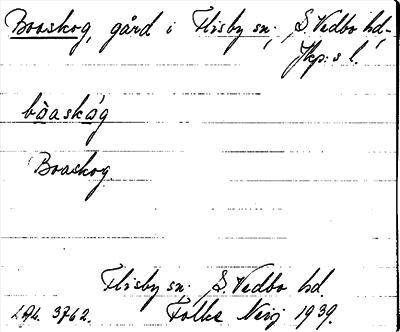 Boaskog, gård i Flisby sn, S. Vedbo hd,
Jkp:s l.
bòaskóg
Boaskog
Flisby sn. S. Vedbo hd.
3762. Folke Neij 1939.